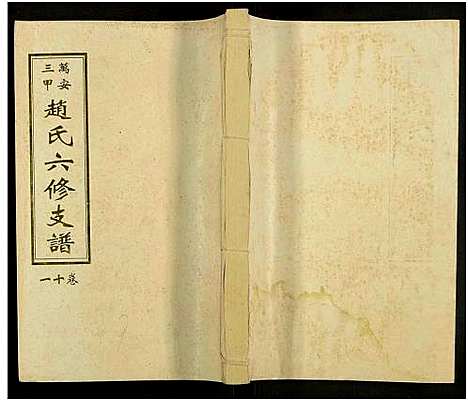 萬安
三甲
趙氏六修支譜
卷十一